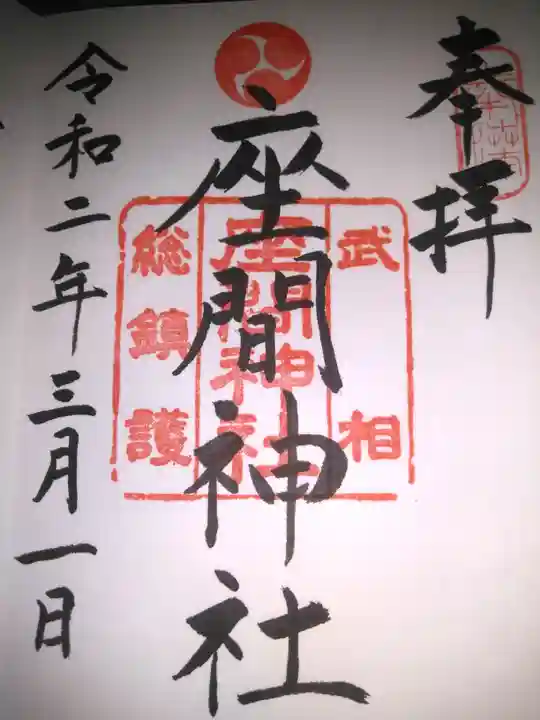 奉拝
武相
座間神社
座間神社
総鎮護
令和二年三月一日